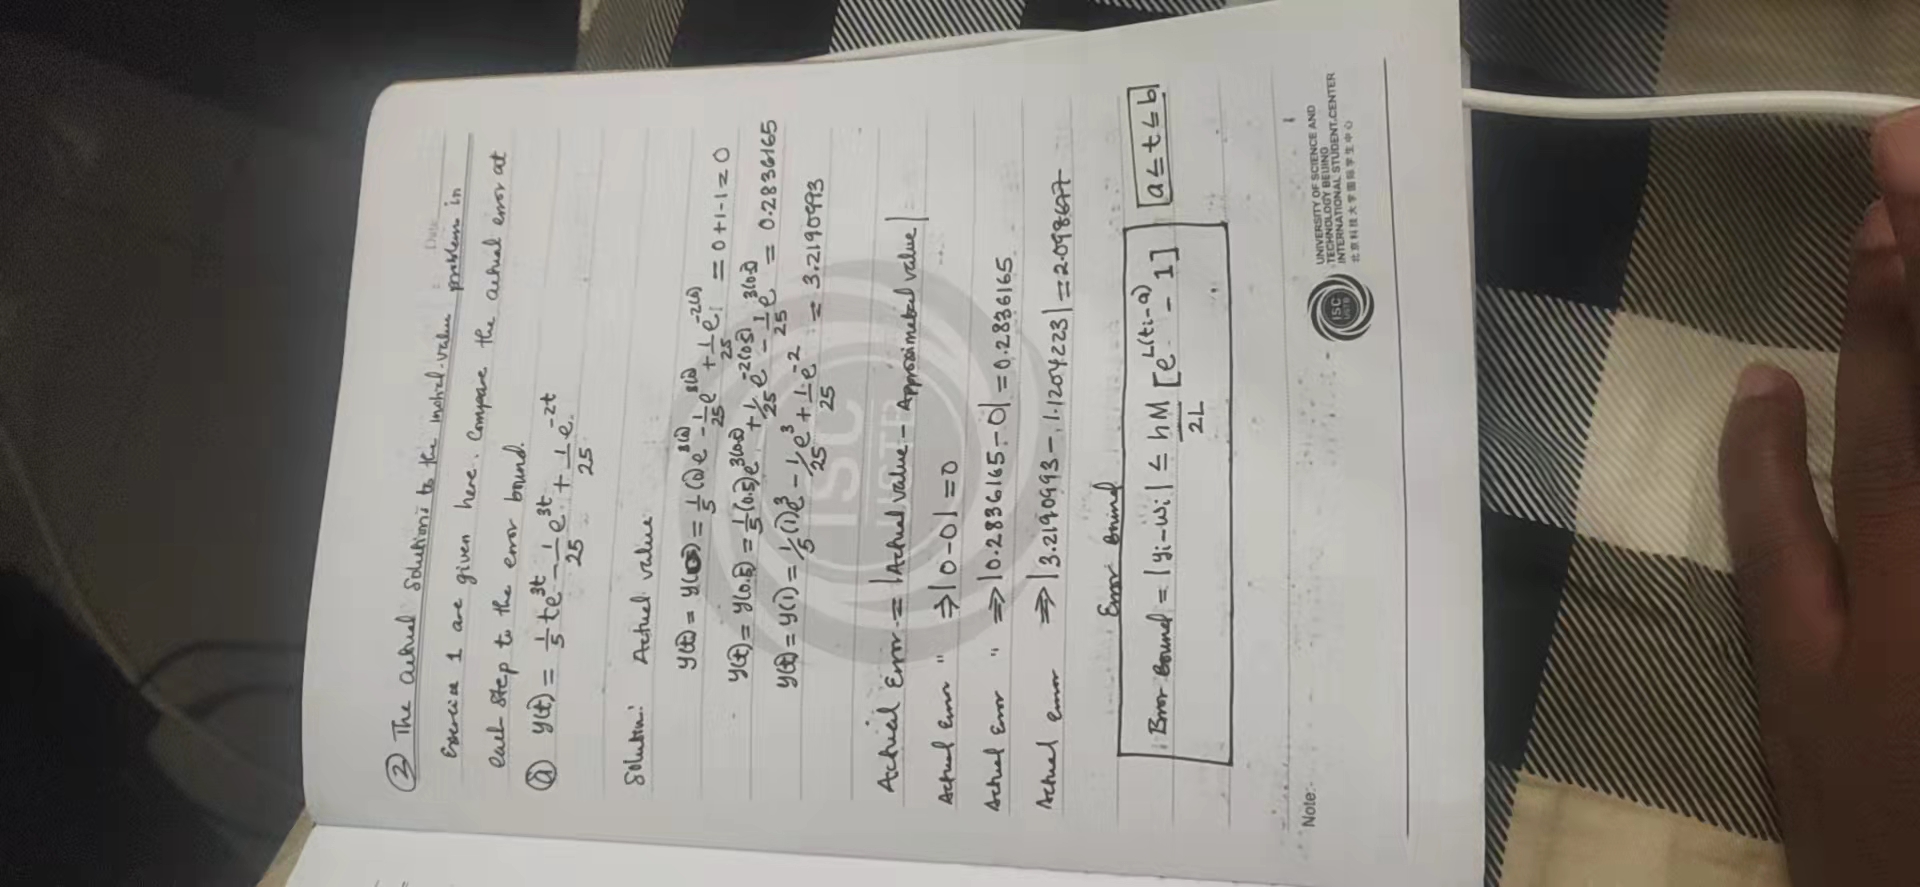 ② The actual Solutions to the initial-value problem in
Date
Exercise 1 are given here. Compare the actual error at
each step to the error bound.
ⓐ y(t) = 1/5 te^3t - 1/25 e^3t + 1/25 e^-2t
Solution: Actual value
y(t) = y(0) = 1/5 (0)e^3(0) - 1/25 e^3(0) + 1/25 e^-2(0) = 0+1-1=0
y(t) = y(0.5) = 1/5 (0.5)e^3(0.5) + 1/25 e^-2(0.5) - 1/25 e^3(0.5) = 0.2836165
y(t) = y(1) = 1/5 (1)e^3 - 1/25 e^3 + 1/25 e^-2 = 3.2190993
ISC
USTB
Actual Error = |Actual value - Approximated value|
Actual Error " ⇒ |0-0| = 0
Actual Error " ⇒ |0.2836165-0| = 0.2836165
Actual error ⇒ |3.2190993 - 1.1204223| = 2.098677
Error Bound
Error Bound = |yi-wi| ≤ hM/2L [e^L(ti-a) - 1] [a≤t≤b]
Note:-
ISC
USTB
UNIVERSITY OF SCIENCE AND
TECHNOLOGY BEIJING
INTERNATIONAL STUDENT.CENTER
北京科技大学国际学生中心